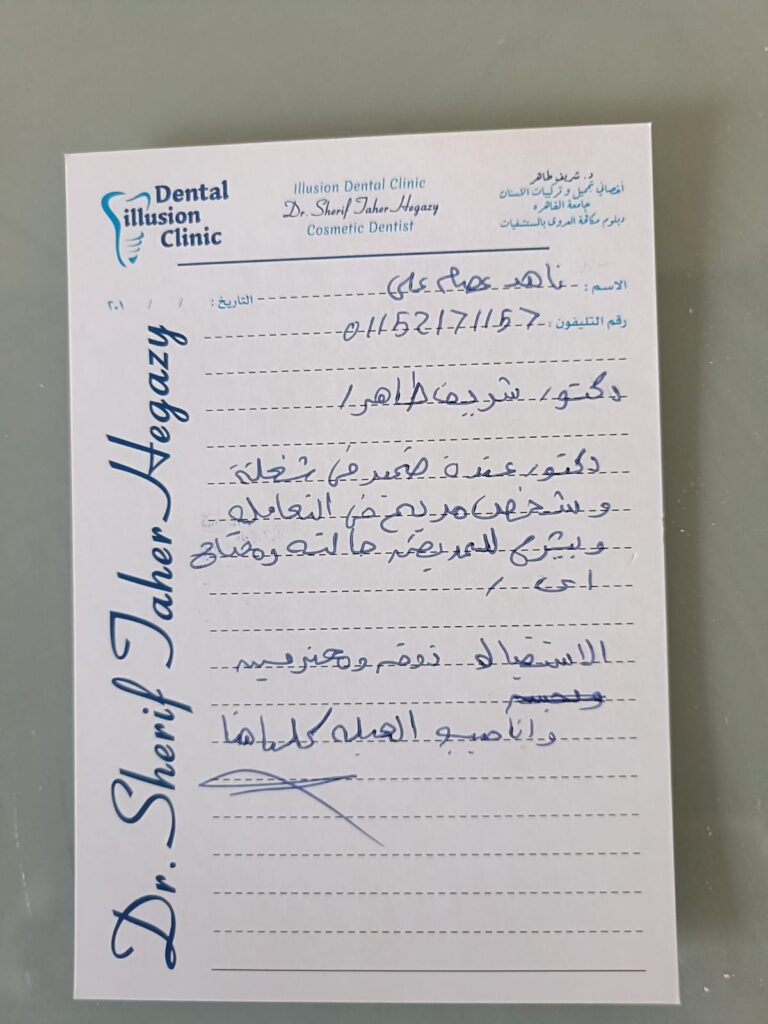 Dental
illusion
Clinic
Illusion Dental Clinic
Dr. Sherif Taher Hegazy
Cosmetic Dentist
د. شريف طاهر
أخصائي تجميل و تركيبات الاسنان
جامعة القاهره
دبلوم مكافحة العدوى بالمستشفيات
الاسم : ناهد عصام على
التاريخ : / / ٢٠١
رقم التليفون : 01152171157
دكتور/ شريف طاهر/
دكتور عنده ضمير فى شغلة
و شخص مريح فى التعامل
و بيشرح للمريض حالته ومحتاج
اى /
الاستقبال ذوق ومحترمين
وانا حبيت العيله كلها هنا
Dr. Sherif Taher Hegazy